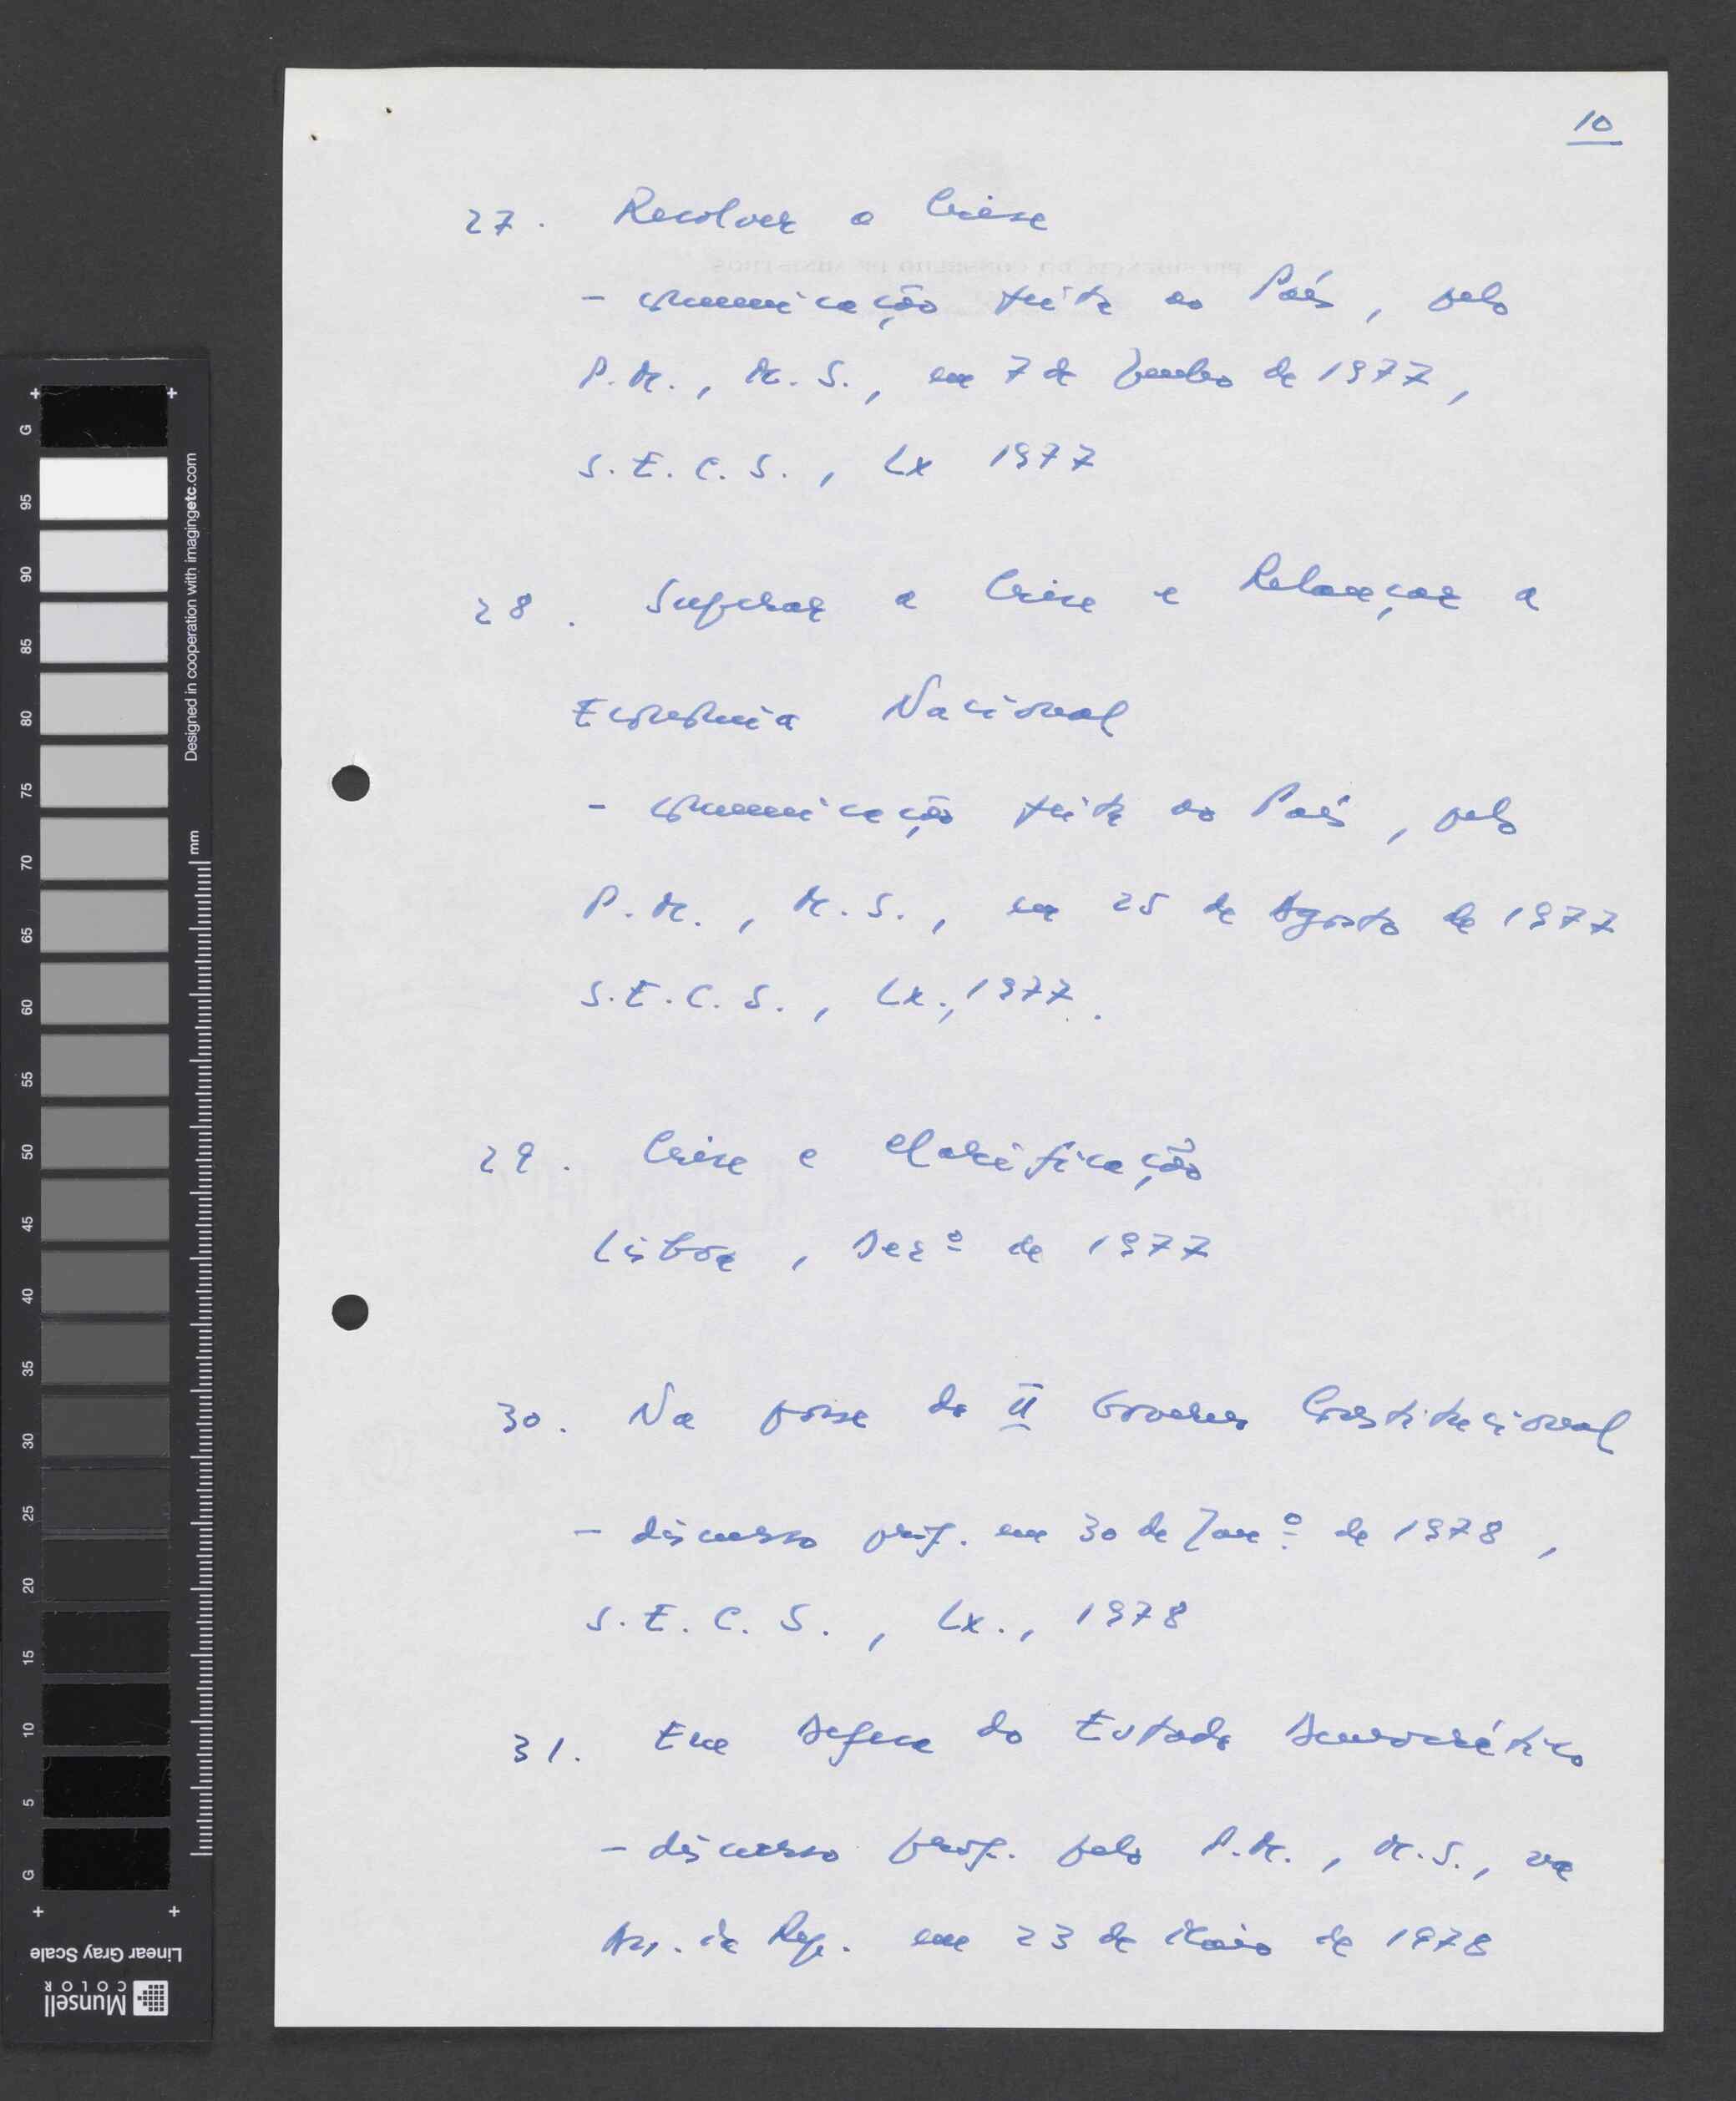 10
27. Resolver a Crise
- comunicação feita ao País, pelo
P.M., M.S., em 7 de Junho de 1977,
S.E.C.S., Lx 1977
28. Superar a Crise e Relançar a
Economia Nacional
- comunicação feita ao País, pelo
P.M., M.S., em 25 de Agosto de 1977
S.E.C.S., Lx., 1977.
29. Crise e Clarificação
Lisboa, Dezº de 1977
30. Na posse do II Governo Constitucional
- discurso prof. em 30 de Janº de 1978,
S.E.C.S., Lx., 1978
31. Em Defesa do Estado Democrático
- discurso prof. pelo P.M., M.S., na
Ass. da Rep. em 23 de Maio de 1978
G
95
90
85
80
75
70
65
60
55
50
45
40
35
30
25
20
15
10
5
G
Designed in cooperation with imagingetc.com
mm
Linear Gray Scale
Munsell
COLOR